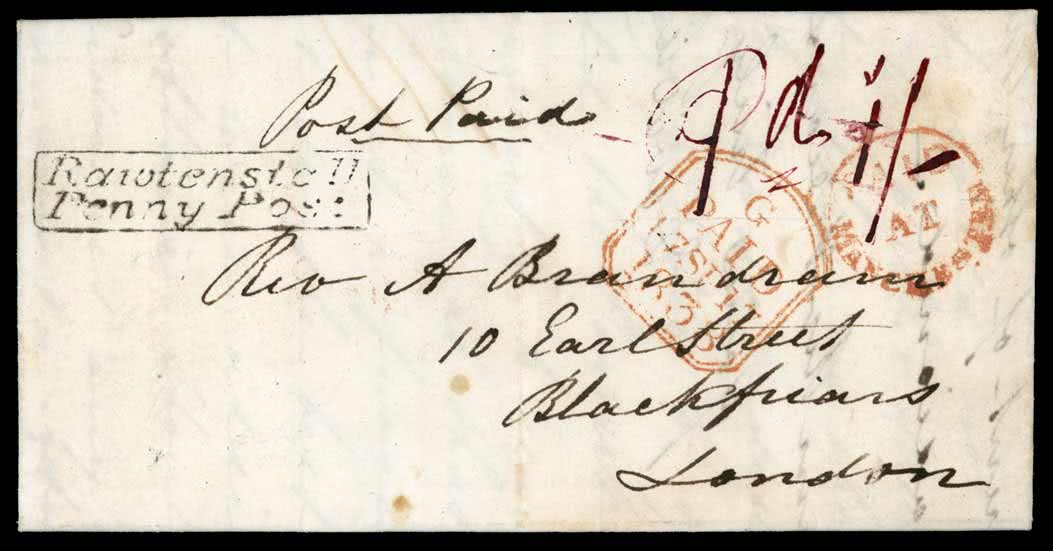 Post Paid
Pd 1/-
Rawtenstall
Penny Post
G
PAID
1838
PAID
AT
MANCHESTER
Rev A Brandram
10 Earl Street
Blackfriars
London